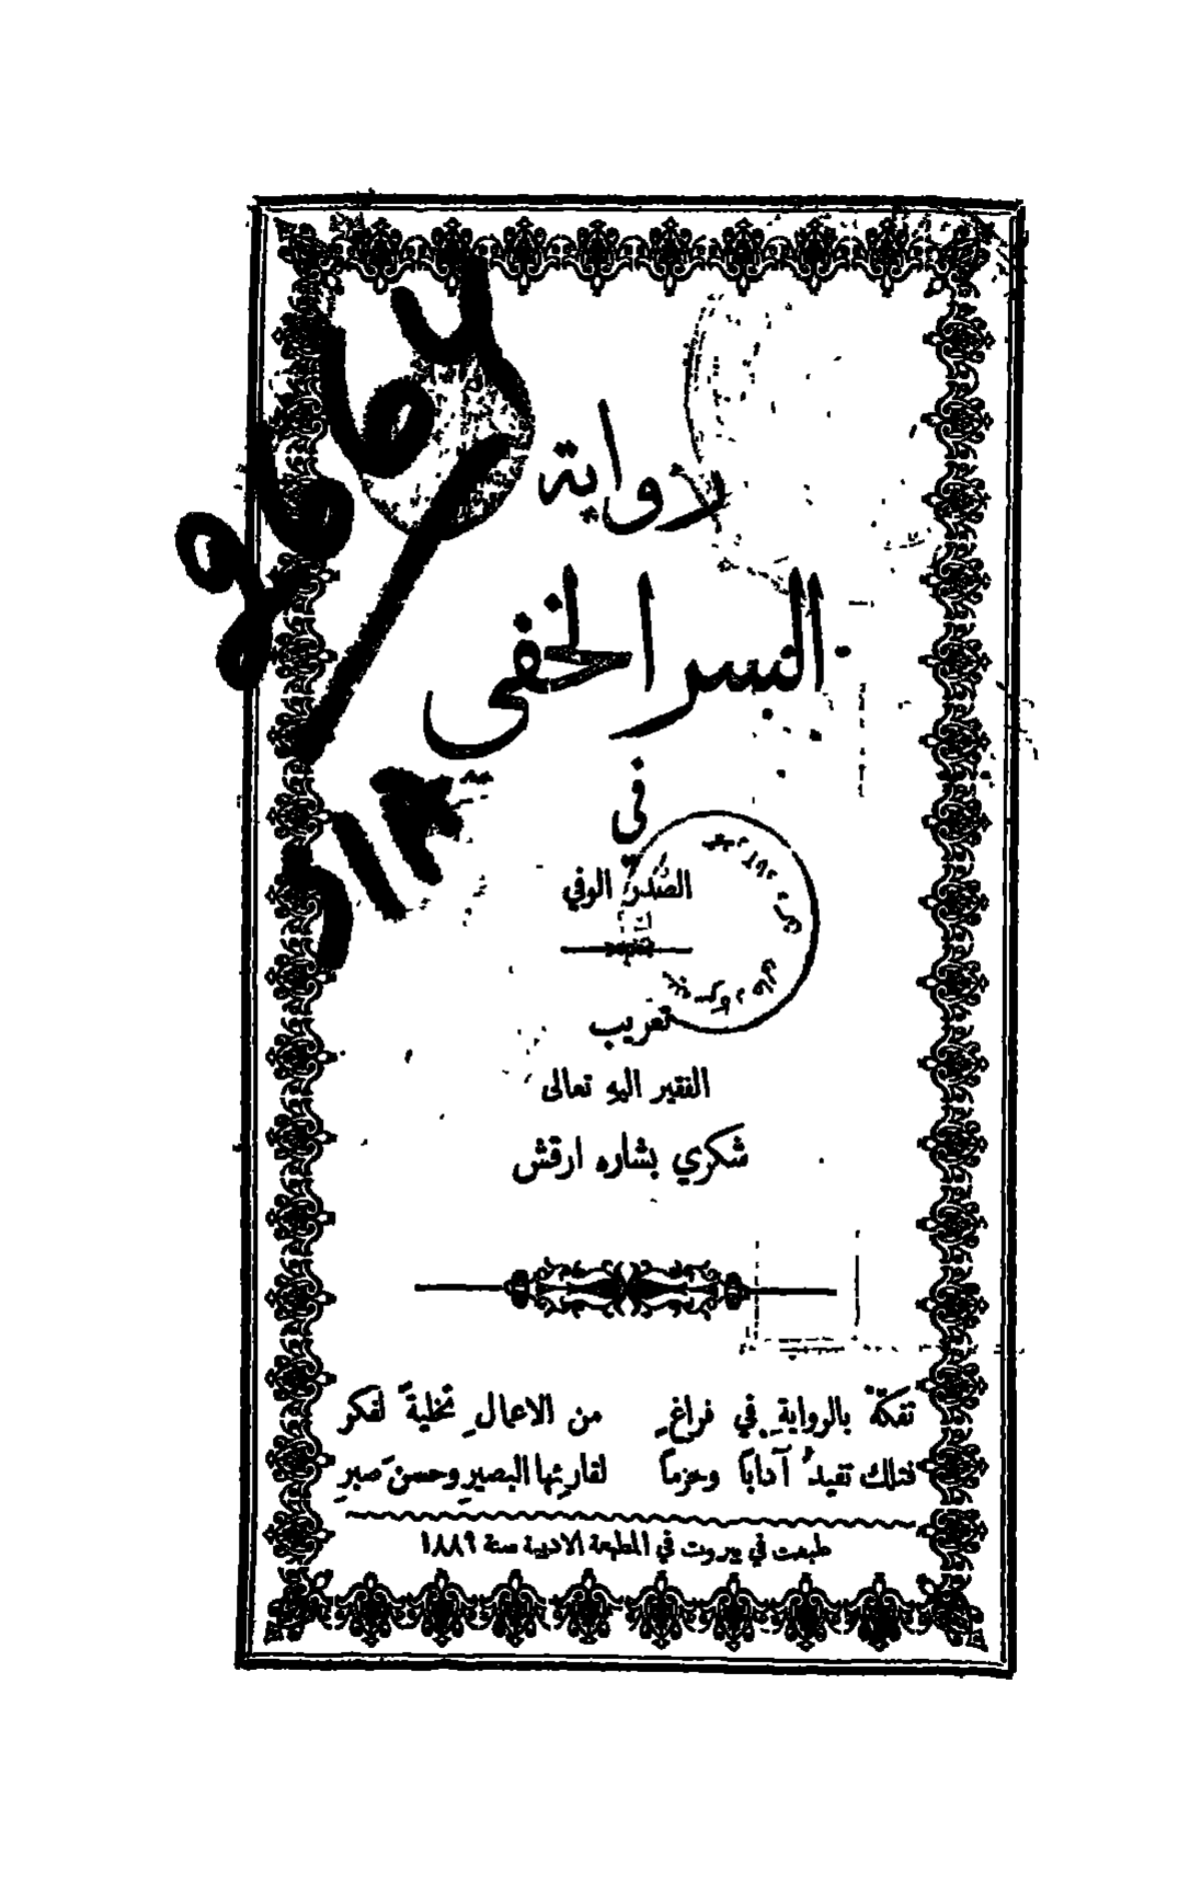 رواية
السر الخفي
في
الصدر الوفي
تعريب
الفقير اليه تعالى
شكري بشاره ارقش
تفكّه بالروايةِ في فراغِ من الاعمالِ تخليةً لفكر
فتلك تفيدُ آداباً وحزماً لقارئها البصيرِ وحسنَ صبرِ
طبعت في بيروت في المطبعة الادبية سنة ١٨٨٩